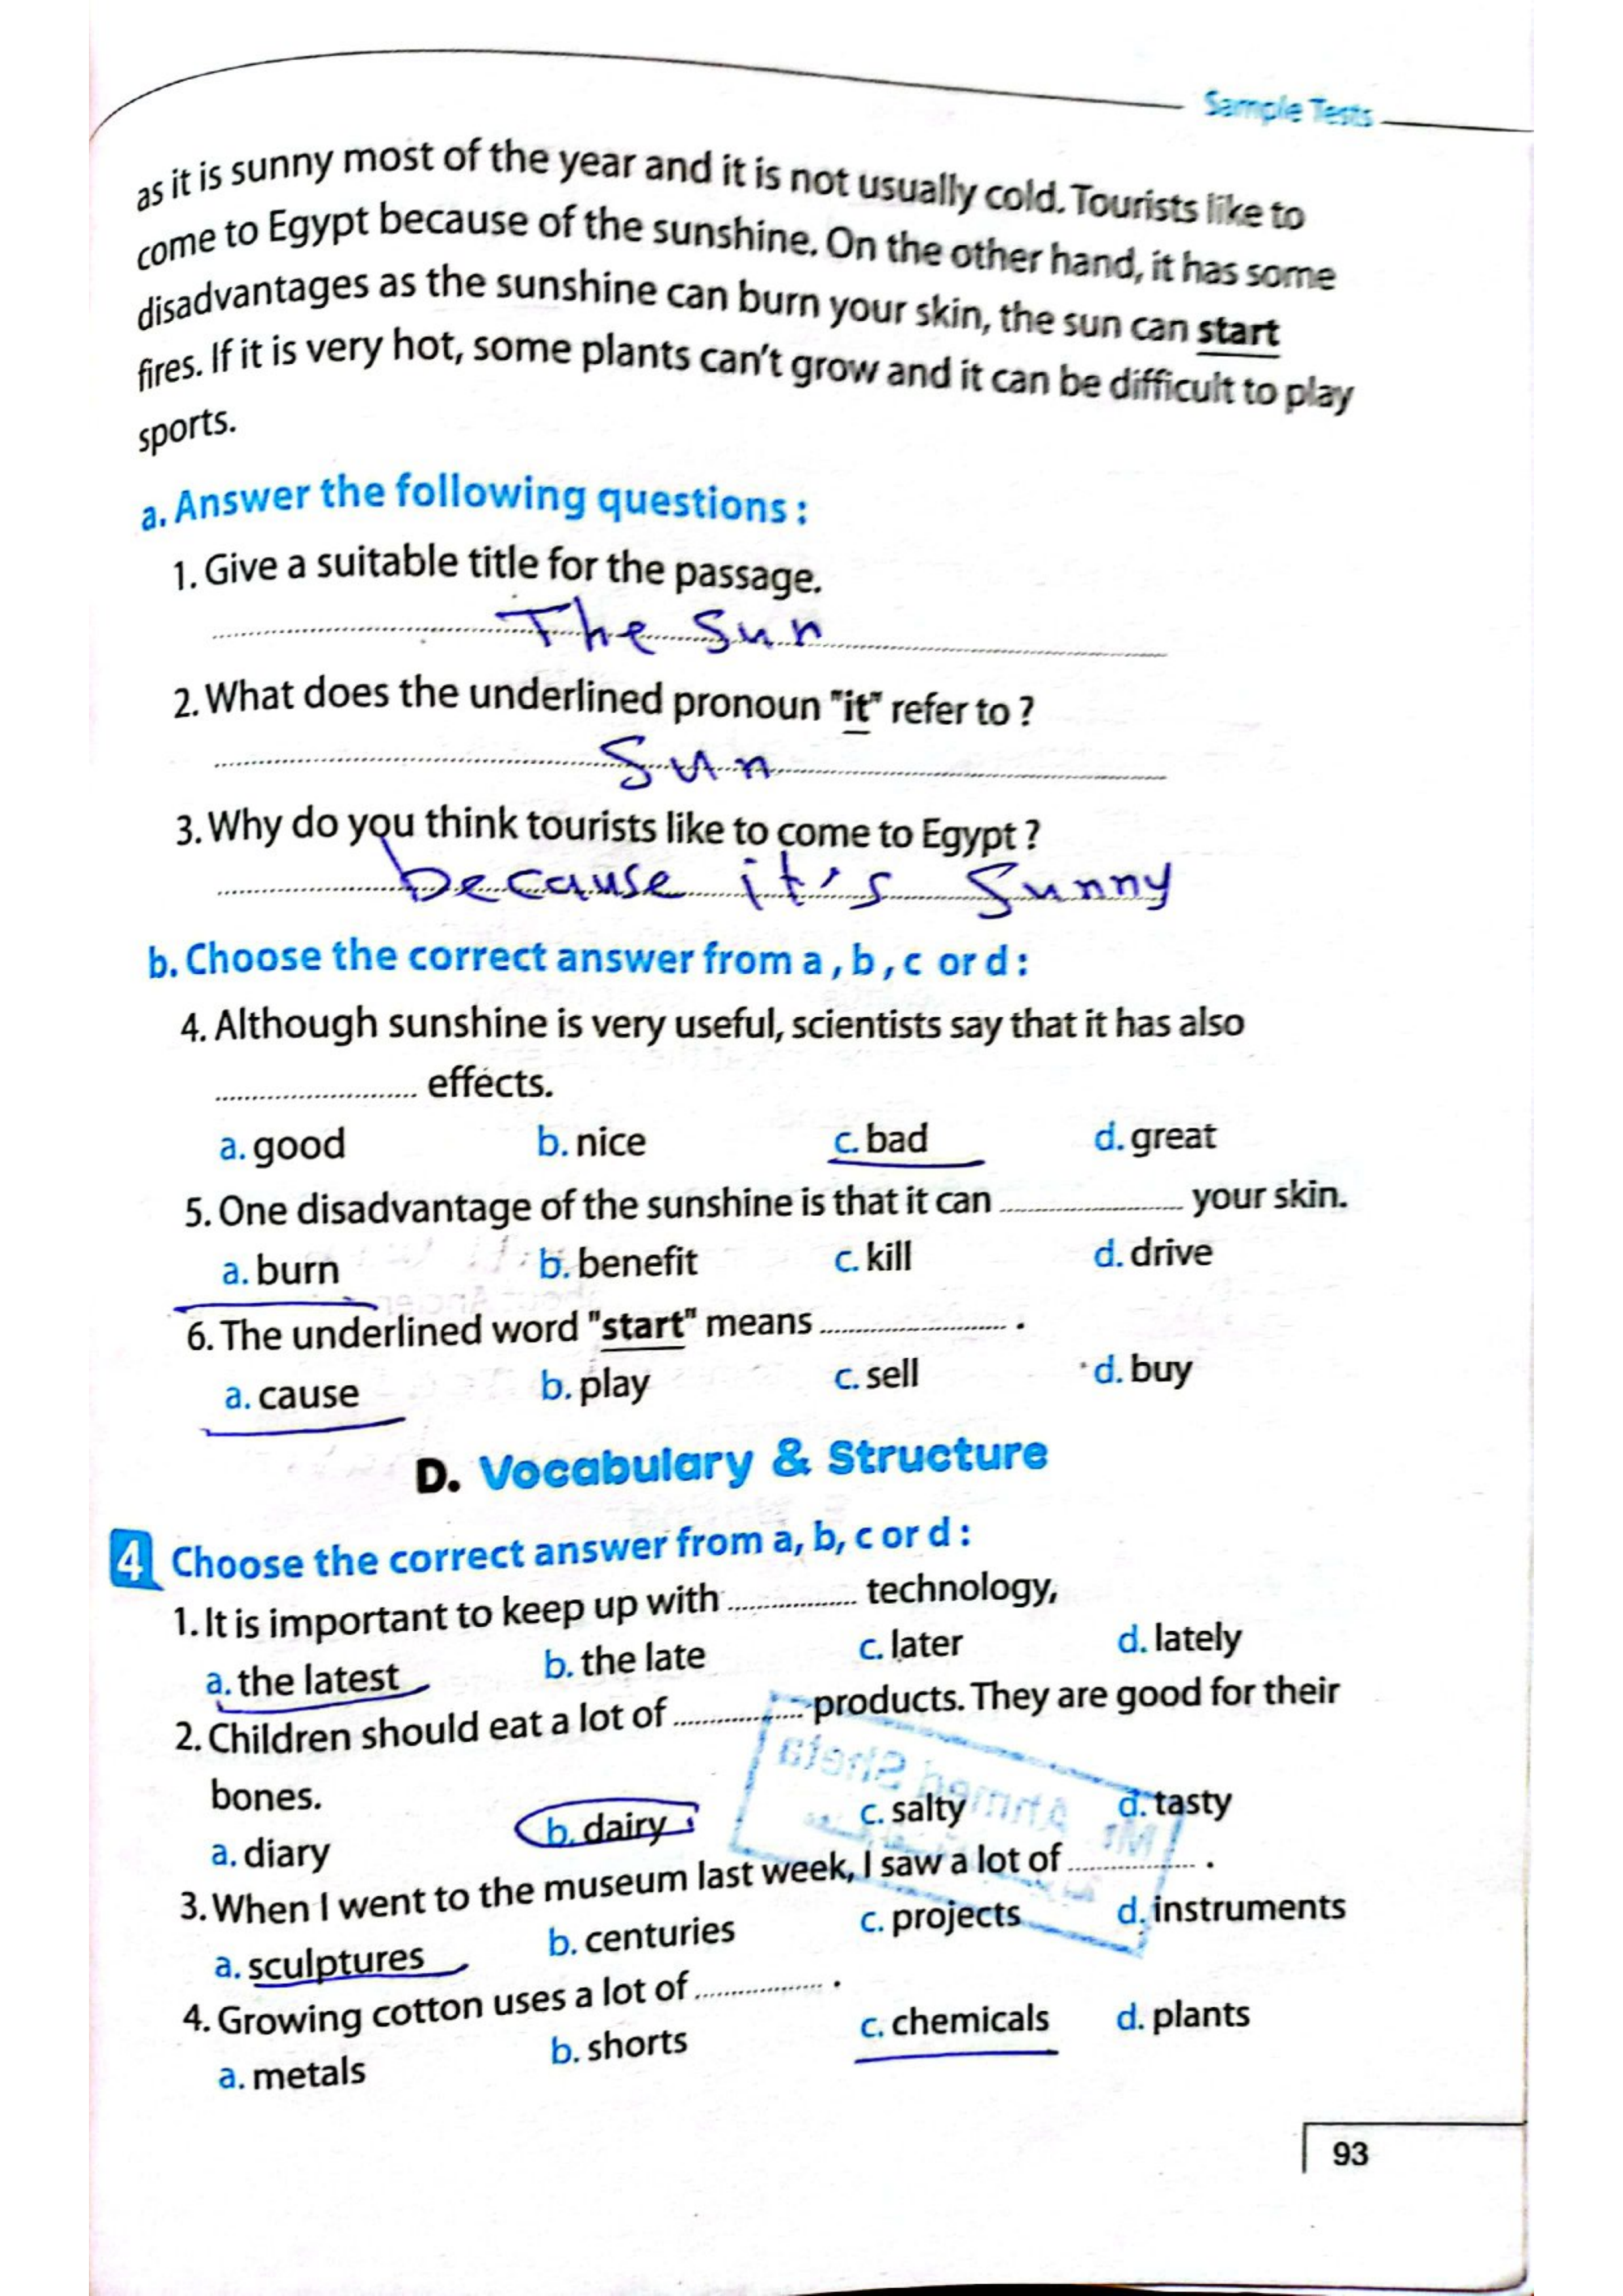 Sample Tests
as it is sunny most of the year and it is not usually cold. Tourists like to
come to Egypt because of the sunshine. On the other hand, it has some
disadvantages as the sunshine can burn your skin, the sun can start
fires. If it is very hot, some plants can't grow and it can be difficult to play
sports.
a. Answer the following questions :
1. Give a suitable title for the passage.
The Sun
2. What does the underlined pronoun "it" refer to ?
Sun
3. Why do you think tourists like to come to Egypt ?
because it's Sunny
b. Choose the correct answer from a , b , c or d :
4. Although sunshine is very useful, scientists say that it has also
.......................... effects.
a. good b. nice c. bad d. great
5. One disadvantage of the sunshine is that it can .......................... your skin.
a. burn b. benefit c. kill d. drive
6. The underlined word "start" means .......................... .
a. cause b. play c. sell d. buy
D. Vocabulary & Structure
4 Choose the correct answer from a, b, c or d :
1. It is important to keep up with .................. technology,
a. the latest b. the late c. later d. lately
2. Children should eat a lot of .................. products. They are good for their
bones.
a. diary b. dairy c. salty d. tasty
3. When I went to the museum last week, I saw a lot of .................. .
a. sculptures b. centuries c. projects d. instruments
4. Growing cotton uses a lot of .................. .
a. metals b. shorts c. chemicals d. plants
Mr. Ahmed Sheta
93